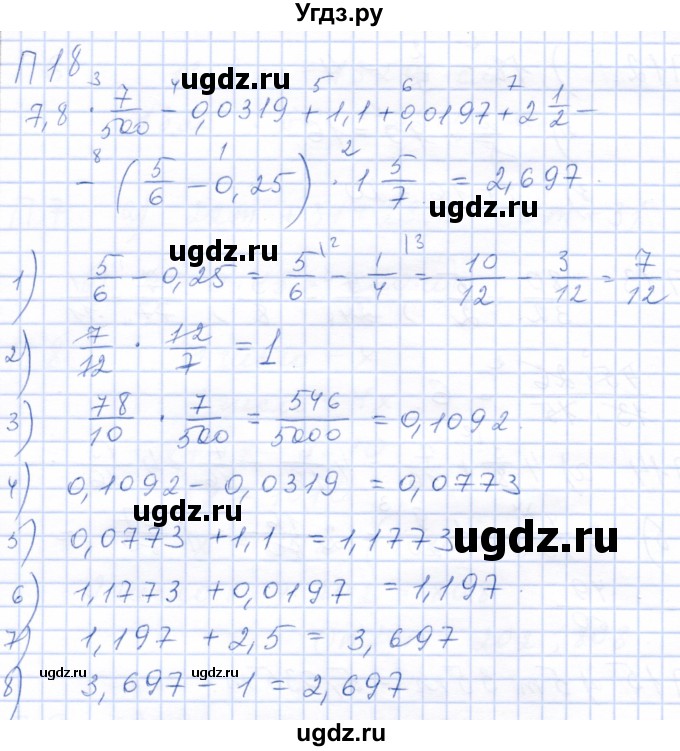 Угдз.ру
П18
3 4 5 6 7
7,8 · 7/500 - 0,0319 + 1,1 + 0,0197 + 2 1/2 -
8 1 2
- (5/6 - 0,25) · 1 5/7 = 2,697.
ugdz.ru
ugdz.ru
ugdz.ru
1) 5/6 - 0,25 = 5/6 |2 - 1/4 |3 = 10/12 - 3/12 = 7/12
2) 7/12 · 12/7 = 1
3) 78/10 · 7/500 = 546/5000 = 0,1092.
ugdz.ru
4) 0,1092 - 0,0319 = 0,0773
ugdz.ru
ugdz.ru
5) 0,0773 + 1,1 = 1,1773
6) 1,1773 + 0,0197 = 1,197.
7) 1,197 + 2,5 = 3,697
ugdz.ru
ugdz.ru
8) 3,697 - 1 = 2,697
ugdz.ru